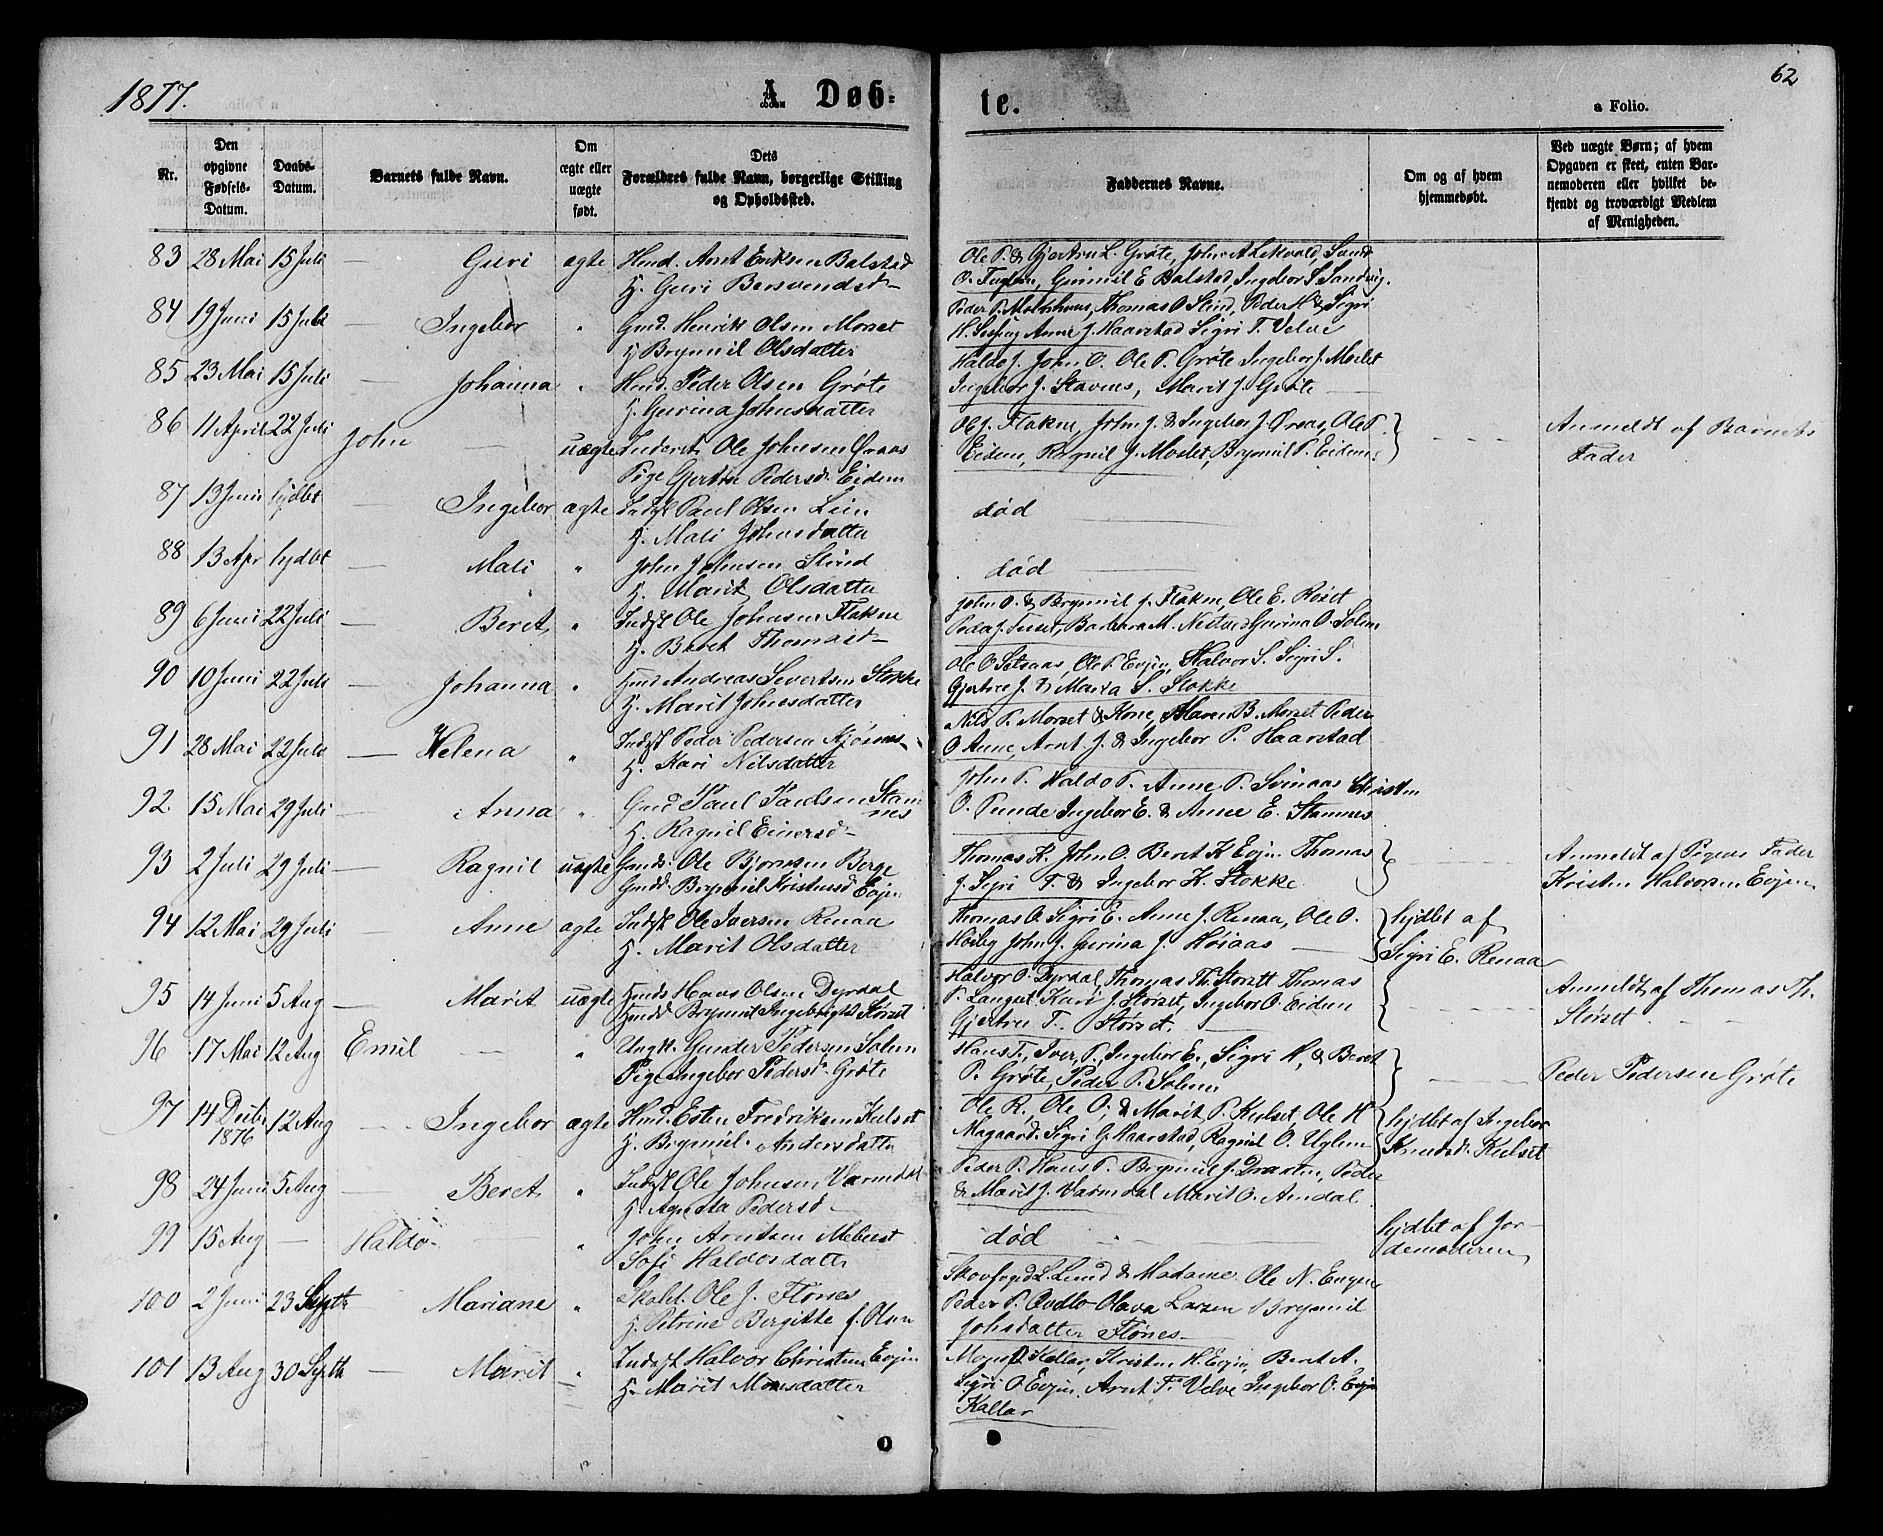 1877.
A. Døb-
te.
62
a Folio.
Nr.
Den opgivne Fødsels-Datum.
Daabs-Datum.
Barnets fulde Navn.
Om ægte eller uægte født.
Dets Forældres fulde Navn, borgerlige Stilling og Opholdssted.
Faddernes Navne.
Om og af hvem hjemmedøbt.
Ved uægte Børn; af hvem Opgaven er skeet, enten Barnemoderen eller hvilket bekjendt og troværdigt Medlem af Menigheden.
83 28 Mai 15 Juli — Guri ægte Huusd. Arnt Eriksen Balstad
H. Guri Bersvendsd-
Ole P. & Gjertru L. Grøte, John A Lekvold,
O. Fuglem, Gunnil E Balstad, Ingebor S Sandvig.
84 19 Juni 15 Juli — Ingebor " Gmd. Henrik Olsen Morset
H. Brynnil Olsdatter
Peder P. Thomas O Slind, Peder H & Sigri
H. Anne J. Haarstad Sigri T. Velve
85 23 Mai 15 Juli — Johanna " Huusd. Peder Olsen Grøte
H. Gurina Johnsdatter
Haldo J. John O. Ole P. Grøte Ingebor J. Moslet
Ingebor J. Stavnes, Marit J. Grøte
86 11 April 22 Juli John — uægte Inderst Ole Johnsen Øraas
Pige Gjertru Pedersd. Eidem
Ole J. Flakne, John J. & Ingebor J. Øraas, Ole P.
Eidem, Ragnil J. Moslet, Brynnil P. Eidem.
Anmeldt af Barnets
Fader
87 13 Juni hjdbt — Ingebor ægte Indst Paul Olsen Lien
H. Mali Johnsdatter
død
88 13 Apr hjdbt — Mali " John Johnsen Slind
H. Marit Olsdatter
død
89 6 Juni 22 Juli — Beret " Indst Ole Johnsen Flakne
H. Beret Thomasd-
John O. & Brynnil J. Flakne, Ole E. Roset
Peder J. Tuset, Barbara M. Gurina O. Solem
90 10 Juni 22 Juli — Johanna " Huusd Andreas Sivertsen Stokke
H. Marit Johnsdatter
Ole O Setsaas, Ole P. Evjen, Halvor S. Sigri S.
Gjertru J. & Maria S. Stokke
91 28 Mai 22 Juli — Helena " Indst Peder Pedersen
H. Kari Nilsdatter
Nils P. Morset & Kone, Maren B. Morset Peder
O Anne, Arnt J. & Ingebor P. Haarstad
92 15 Mai 29 Juli — Anna " Gmd Paul Paulsen Stam-
nes
H. Ragnil Einersd-
John P. Haldo P. Anne P. Svinaas Christen
O. Ingebor E. & Anne E. Stamnes
93 2 Juli 29 Juli — Ragnil uægte Gmds. Ole Bjørnsen Berge
Gmdd. Brynnil Kristensd Evjen
Thomas K. John O. Beret K Evjen Thomas
J. Sigri T. & Ingebor K. Stokke
Anmeldt af Pigens Fader
Kristen Halvorsen Evjen
94 12 Mai 29 Juli — Anne ægte Indst Ole Iversen Renaa
H. Marit Olsdatter
Thomas O. Sigri E. Anne J. Renaa, Ole O.
John J. Gurina J. Høiaas
hjdbt af
Sigri E. Renaa
95 14 Juni 5 Aug — Marit uægte Huusds Hans Olsen Dyrdal
Huusdd Brynnil Ingebrigtsd Størset
Halvor O. Dyrdal, Thomas Th. Størset Thomas
P. Langset Kari J. Størset, Ingebor O. Eidem
Gjertru T. Størset.
Anmeldt af Thomas Th.
Størset
96 17 Mai 12 Aug Emil — " Ungk. Gunder Pedersen Solem
Pige Ingebor Pedersd. Grøte
Hans T., Iver, P. Ingebor E., Sigri H, & Beret
P. Grøte, Peder P. Solem
Peder Pedersen Grøte
97 14 Decbr 1876 12 Aug — Ingebor ægte Huusd. Esten Fredriksen Kulset
H. Brynnil Andersdatter
Ole R. Ole O. & Marit P. Kulset, Ole H
Magaard. Sigri G. Haarstad, Ragnil O. Uglem
hjdbt af Ingebor
Knudsd. Kulset
98 24 Juni 5 Aug — Beret " Indst Ole Johnsen Varmdal
H. Agnesta Pedersd-
Peder P. Hans P. Brynnil J. Draxten, Peder
& Marit J. Varmdal Marit O. Amdal
99 15 Aug — Haldo — " John Arntsen Mebust
Sofi Haldosdatter
død
hjdbt af Jor-
demoderen
100 2 Juni 23 Septb — Mariane " Skolel. Ole J. Flønes
H. Petrine Bergitte f. Olsen
Skovfoged L. Lund & Madame Ole N. Evjen
Peder P. Olava Larsen Brynnil
Johsdatter Flønes
101 13 Aug 30 Septb — Marit " Indst Halvor Christensen Evjen
H. Marit Monsdatter
Mons P Kallar, Kristen H. Evjen, Beret A.
Sigri O Evjen. Arnt F. Velve Ingebor O. Evjen
Kallar